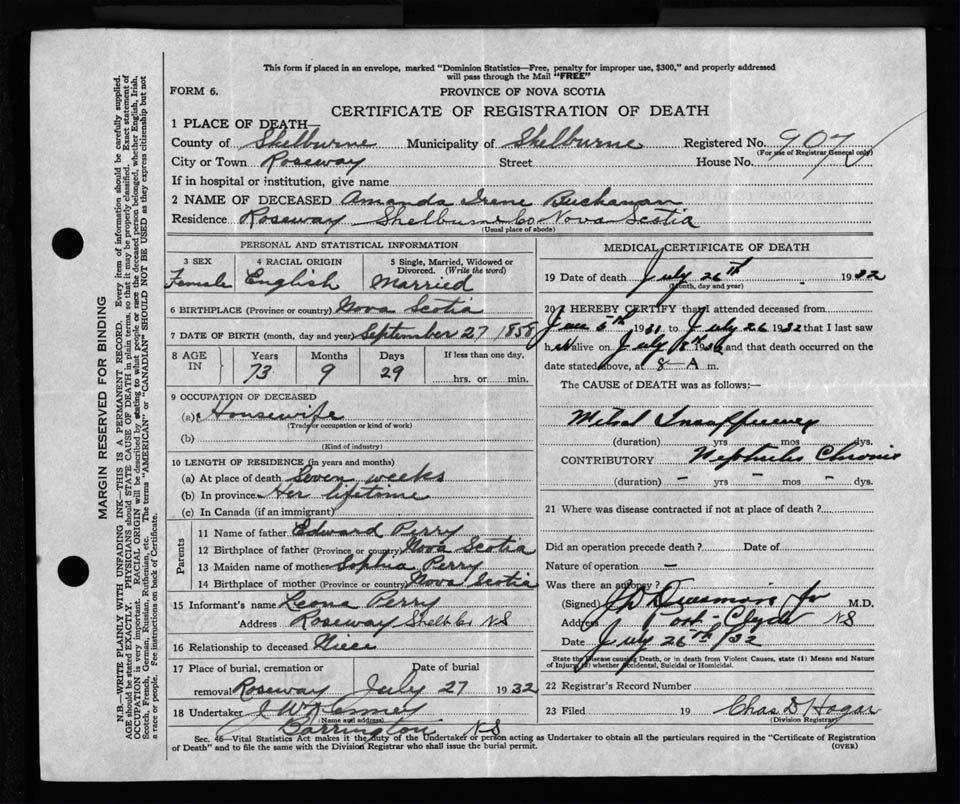 This form if placed in an envelope, marked "Dominion Statistics—Free, penalty for improper use, $300," and properly addressed
will pass through the Mail "FREE"
FORM 6.
PROVINCE OF NOVA SCOTIA
CERTIFICATE OF REGISTRATION OF DEATH
1 PLACE OF DEATH—
County of Shelburne Municipality of Shelburne Registered No. 907
(For use of Registrar General only)
City or Town Roseway Street House No.
If in hospital or institution, give name
2 NAME OF DECEASED Amanda Irene Buchanan
Residence Roseway Shelburne Co Nova Scotia
(Usual place of abode)
PERSONAL AND STATISTICAL INFORMATION
3 SEX 4 RACIAL ORIGIN 5 Single, Married, Widowed or
Divorced. (Write the word)
Female English Married
6 BIRTHPLACE (Province or country) Nova Scotia
7 DATE OF BIRTH (month, day and year) September 27 1858
8 AGE IN Years Months Days If less than one day,
73 9 29 hrs. or min.
9 OCCUPATION OF DECEASED
(a) Housewife
(Trade or occupation or kind of work)
(b)
(Kind of industry)
10 LENGTH OF RESIDENCE (in years and months)
(a) At place of death Seven weeks
(b) In province Her lifetime
(c) In Canada (if an immigrant)
Parents
11 Name of father Edward Perry
12 Birthplace of father (Province or country) Nova Scotia
13 Maiden name of mother Sophia Perry
14 Birthplace of mother (Province or country) Nova Scotia
15 Informant's name Leona Perry
Address Roseway Shelb Co NS
16 Relationship to deceased Niece
17 Place of burial, cremation or Date of burial
removal Roseway July 27 1932
18 Undertaker J W
(Name and address)
Barrington NS
MEDICAL CERTIFICATE OF DEATH
19 Date of death July 26th 1932
(Month, day and year)
20 I HEREBY CERTIFY that I attended deceased from
June 5th 1931 to July 26 1932 that I last saw
h alive on July and that death occurred on the
date stated above, at 8 A m.
The CAUSE of DEATH was as follows:—
Mitral Insufficiency
(duration) yrs mos dys.
CONTRIBUTORY Nephritis Chronic
(duration) – yrs – mos – dys.
21 Where was disease contracted if not at place of death?
Did an operation precede death? Date of
Nature of operation –
Was there an autopsy?
(Signed) M.D.
Address Port Clyde NS
Date July 26th/32
State the Disease causing Death, or in death from Violent Causes, state (1) Means and Nature
of Injury; (2) whether Accidental, Suicidal or Homicidal.
22 Registrar's Record Number
23 Filed 19 Chas D Hagar
(Division Registrar)
Sec. 46—Vital Statistics Act makes it the duty of the Undertaker or person acting as Undertaker to obtain all the particulars required in the "Certificate of Registration
of Death" and to file the same with the Division Registrar who shall issue the burial permit.
(OVER)
MARGIN RESERVED FOR BINDING
N.B.—WRITE PLAINLY WITH UNFADING INK—THIS IS A PERMANENT RECORD. Every item of information should be carefully supplied.
AGE should be stated EXACTLY. PHYSICIANS should STATE CAUSE OF DEATH in plain terms, so that it may be properly classified. Exact statement of
OCCUPATION is very important. RACIAL ORIGIN will be described by stating to what people or race the deceased person belonged, whether English, Irish,
Scotch, French, German, Russian, Ruthenian, etc. The terms "AMERICAN" or "CANADIAN" SHOULD NOT BE USED as they express citizenship but not
a race or people. See instructions on back of Certificate.